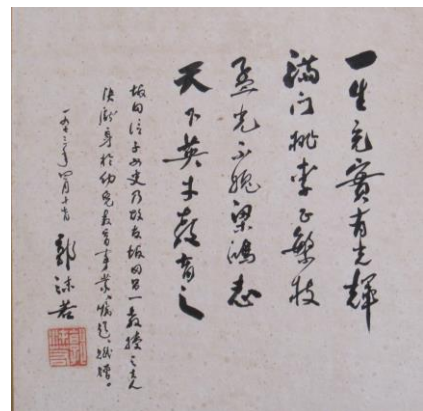 一生充實有光輝
滿门桃李正繁枝
孟光不愧梁鴻志
天下英才教育之
坂田信子女史乃故友坂田昌一教授之夫人
決獻身於幼兒教育事業，嘱題，賦贈。
一九七二年四月十六日
郭沫若